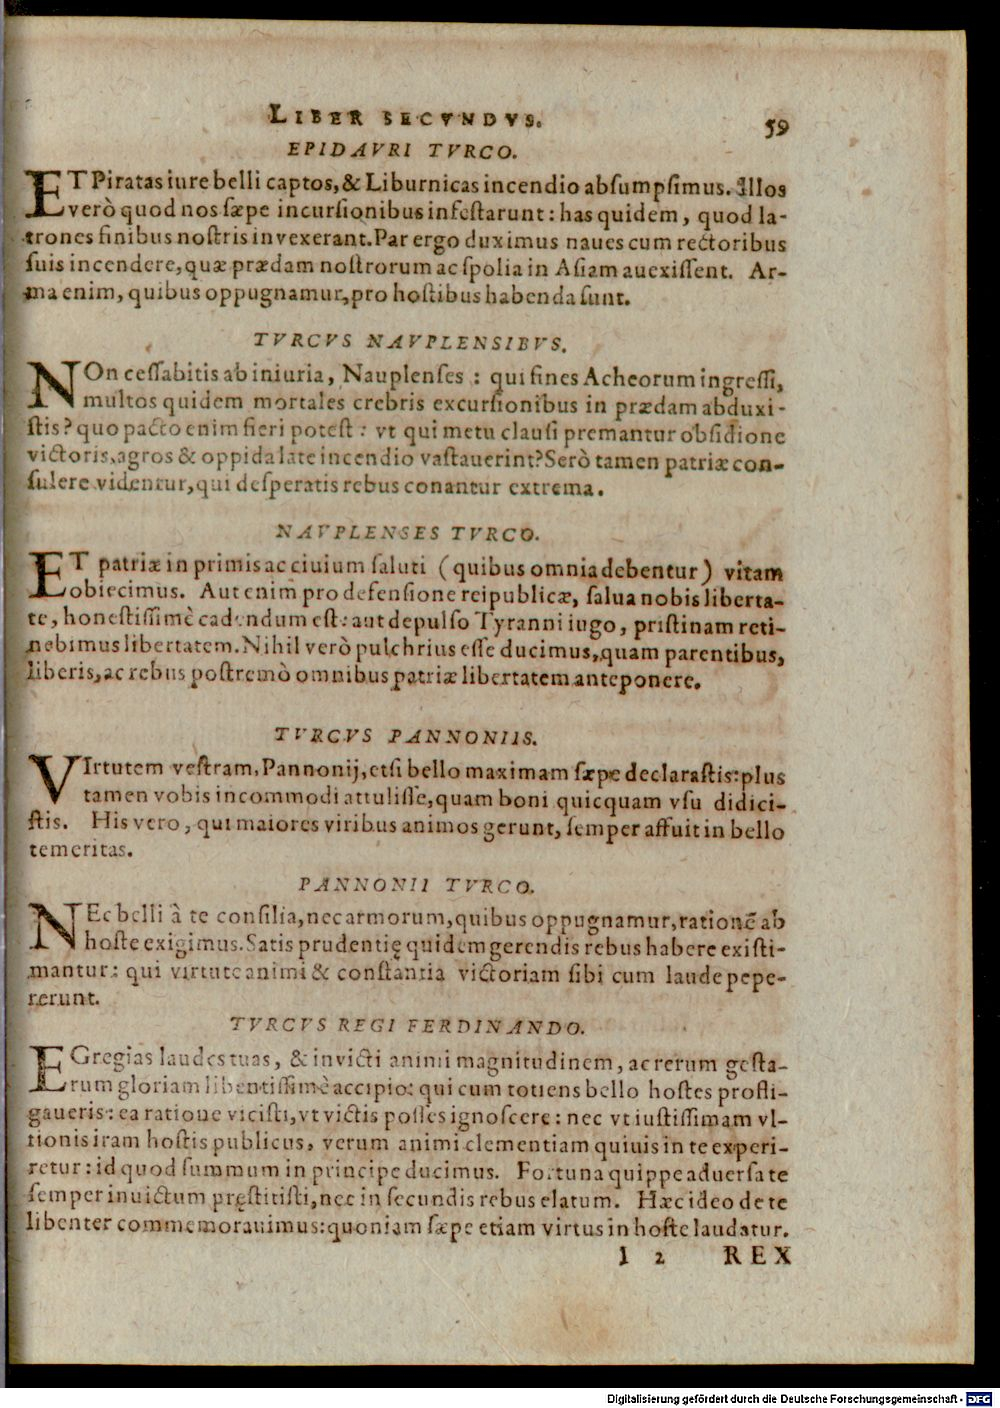 LIBER SECVNDVS. 59
EPIDAVRI TVRCO.
ET Piratas iure belli captos, & Liburnicas incendio absumpsimus. Illos
verò quod nos sæpe incursionibus infestarunt: has quidem, quod la-
trones finibus nostris invexerant. Par ergo duximus naues cum rectoribus
suis incendere, quæ prædam nostrorum ac spolia in Asiam auexissent. Ar-
ma enim, quibus oppugnamur, pro hostibus habenda sunt.
TVRCVS NAVPLENSIBVS.
NOn cessabitis ab iniuria, Nauplenses: qui fines Acheorum ingressi,
multos quidem mortales crebris excursionibus in prædam abduxi-
stis? quo pacto enim fieri potest: vt qui metu clausi premantur obsidione
victoris, agros & oppida late incendio vastauerint? Serò tamen patriæ con-
sulere videntur, qui desperatis rebus conantur extrema.
NAVPLENSES TVRCO.
ET patriæ in primis ac ciuium saluti (quibus omnia debentur) vitam
obiecimus. Aut enim pro defensione reipublicæ, salua nobis liberta-
te, honestissimè cadendum est: aut depulso Tyranni iugo, pristinam reti-
nebimus libertatem. Nihil verò pulchrius esse ducimus, quam parentibus,
liberis, ac rebus postremò omnibus patriæ libertatem anteponere.
TVRCVS PANNONIIS.
VIrtutem vestram, Pannonij, etsi bello maximam sæpe declarastis: plus
tamen vobis incommodi attulisse, quam boni quicquam vsu didici-
stis. His vero, qui maiores viribus animos gerunt, semper affuit in bello
temeritas.
PANNONII TVRCO.
NEc belli â te consilia, nec armorum, quibus oppugnamur, rationē ab
hoste exigimus. Satis prudentię quidem gerendis rebus habere existi-
mantur: qui virtute animi & constantia victoriam sibi cum laude pepe-
rerunt.
TVRCVS REGI FERDINANDO.
EGregias laudes tuas, & invicti animi magnitudinem, ac rerum gesta-
rum gloriam libentissimè accipio: qui cum totiens bello hostes profli-
gaueris: ea ratione vicisti, vt victis posses ignoscere: nec vt iustissimam vl-
tionis iram hostis publicus, verum animi clementiam quiuis in te experi-
retur: id quod summum in principe ducimus. Fortuna quippe aduersa te
semper inuictum pręstitisti, nec in secundis rebus elatum. Hæc ideo de te
libenter commemorauimus: quoniam sæpe etiam virtus in hoste laudatur.
I 2 REX
Digitalisierung gefördert durch die Deutsche Forschungsgemeinschaft - DFG